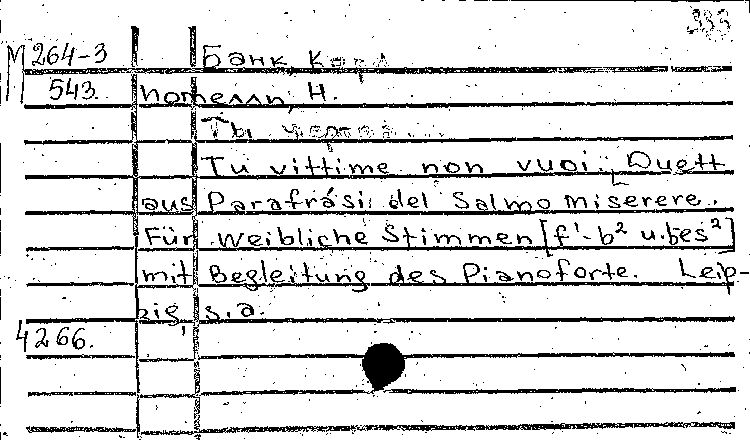 333
М 264-3 Банк, Карл
543. Иомелли, Н.
Ты
Tu vittime non vuoi. Duett
aus Parafrasi del Salmo miserere.
Für weibliche Stimmen [f'-b² u. bes²]
mit Begleitung des Pianoforte. Leip-
zig, s.a.
4266.